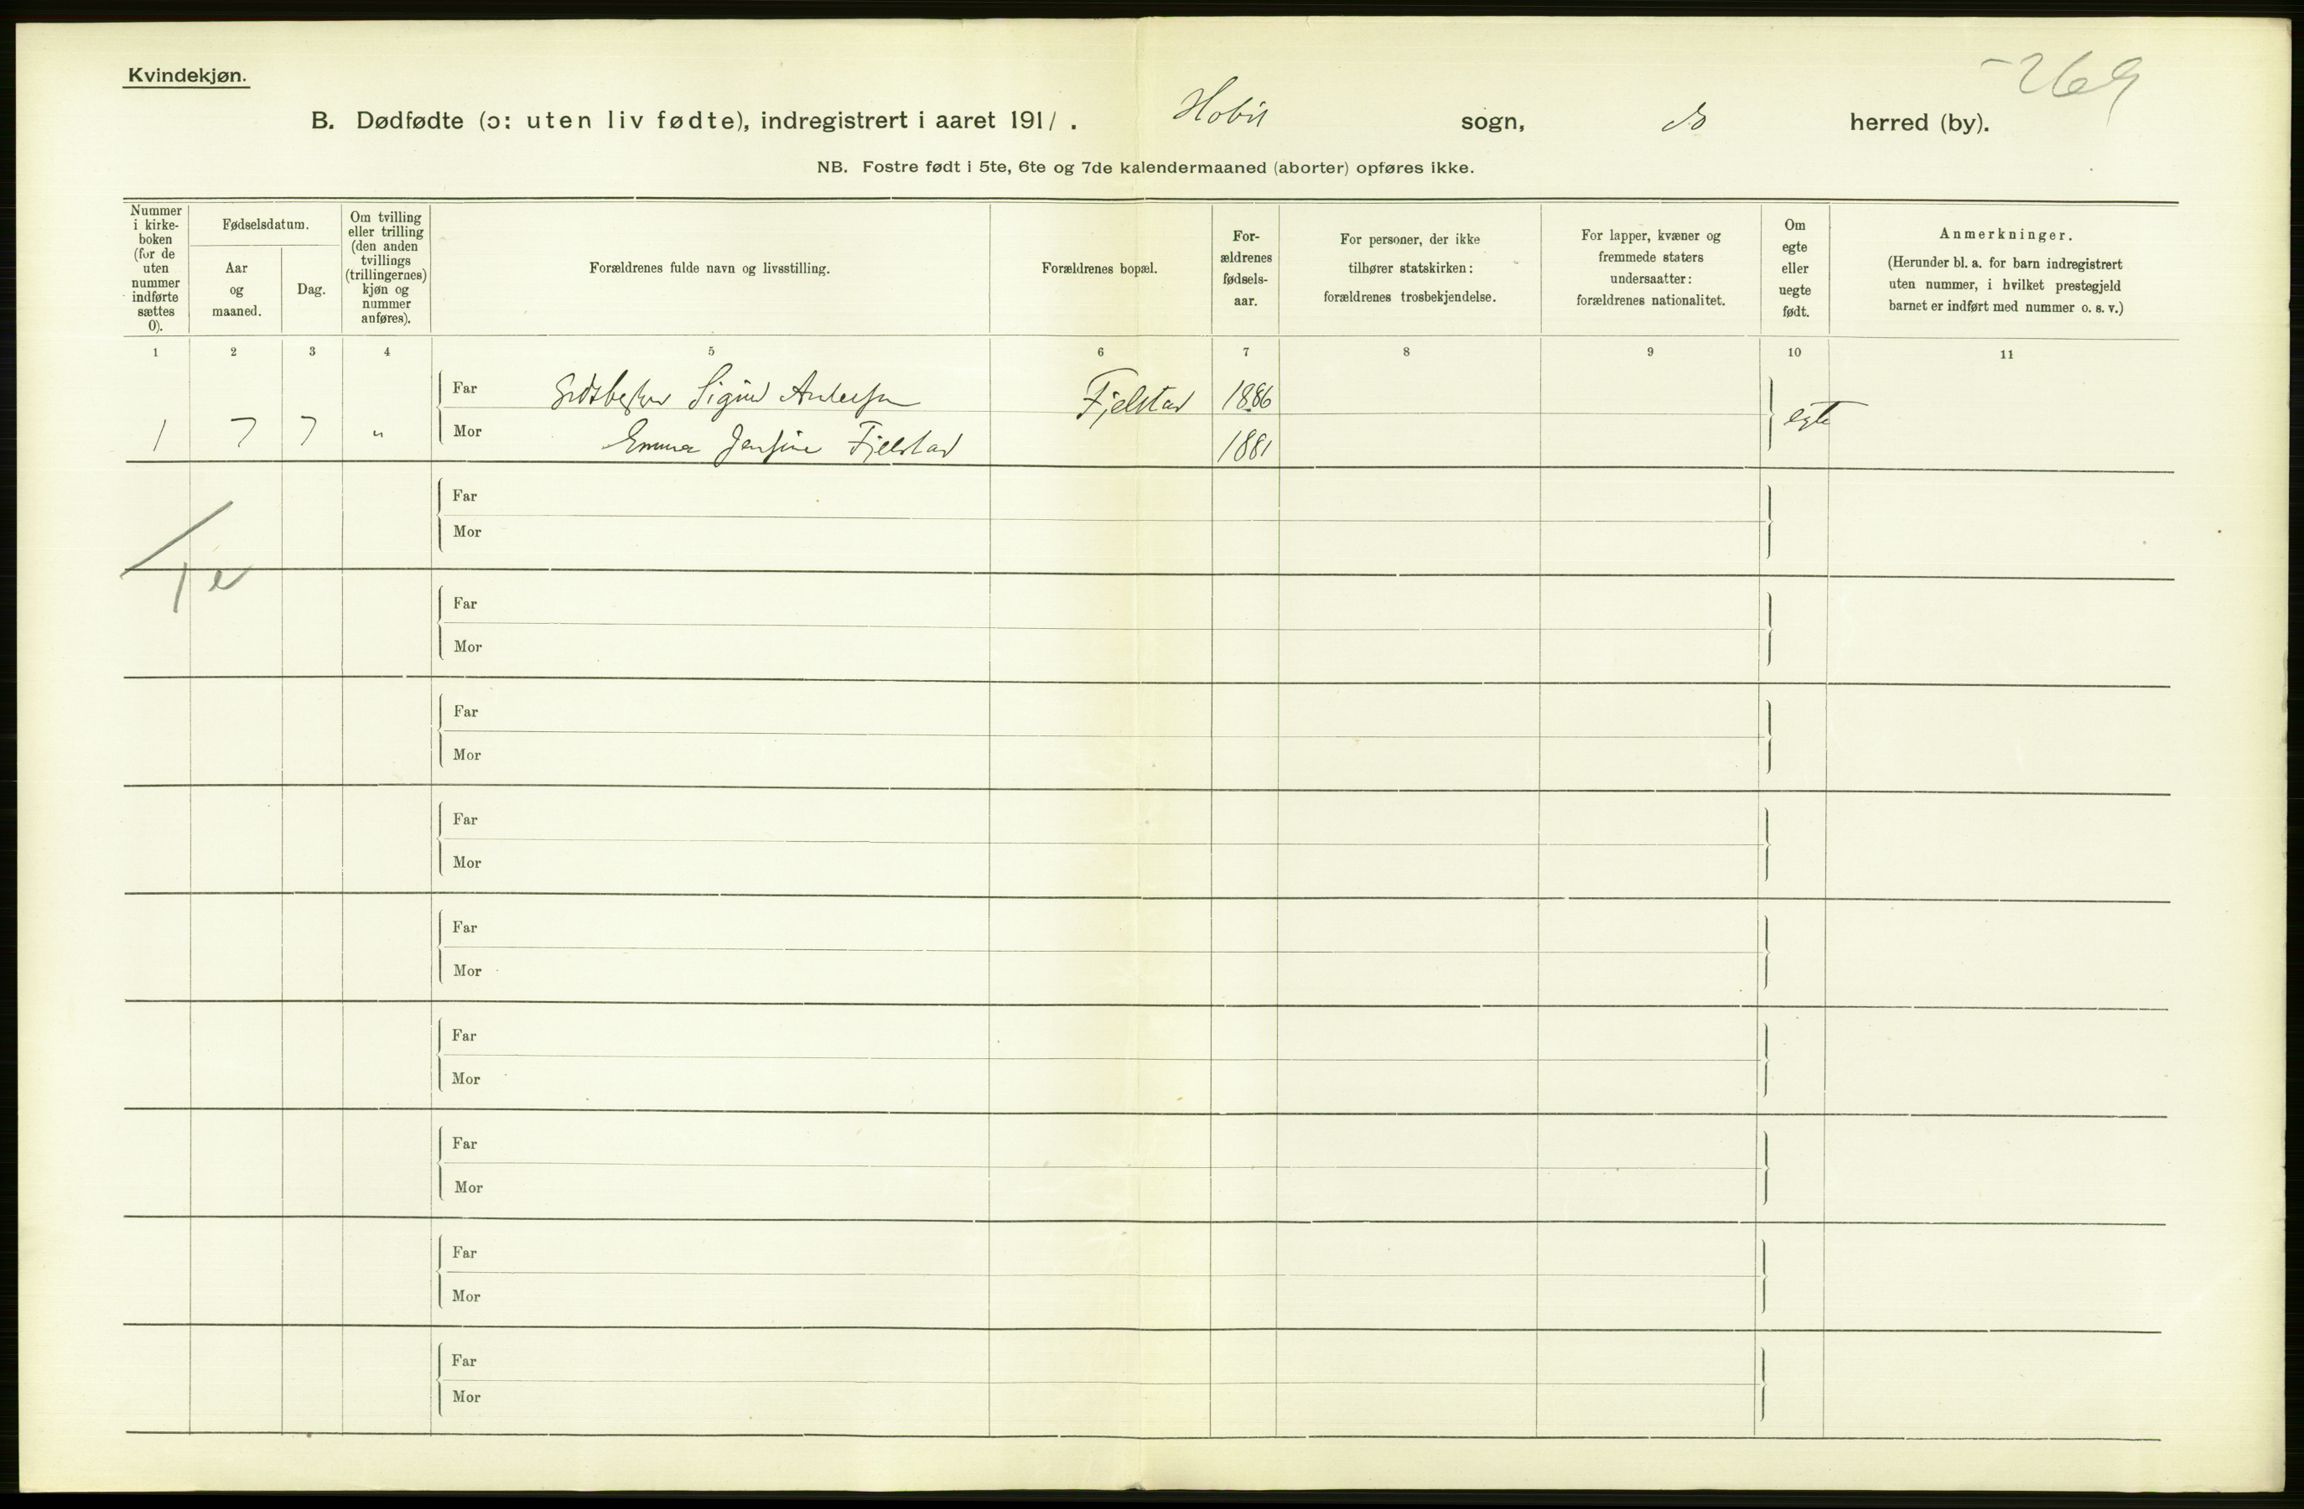 269
Kvindekjøn.
B. Dødfødte (ɔ: uten liv fødte), indregistrert i aaret 1911. Hobøl sogn, do herred (by).
NB. Fostre født i 5te, 6te og 7de kalendermaaned (aborter) opføres ikke.
Nummer
i kirke-
boken
(for de
uten
nummer
indførte
sættes
0).
Fødselsdatum.
Aar
og
maaned.
Dag.
Om tvilling
eller trilling
(den anden
tvillings
(trillingernes)
kjøn og
nummer
anføres).
Forældrenes fulde navn og livsstilling.
Forældrenes bopæl.
For-
ældrenes
fødsels-
aar.
For personer, der ikke
tilhører statskirken:
forældrenes trosbekjendelse.
For lapper, kvæner og
fremmede staters
undersaatter:
forældrenes nationalitet.
Om
egte
eller
uegte
født.
Anmerkninger.
(Herunder bl. a. for barn indregistrert
uten nummer, i hvilket prestegjeld
barnet er indført med nummer o. s. v.)
1 2 3 4 5 6 7 8 9 10 11
Far Sigurd Andersen Fjelstad 1886
1 7 7 " egte
Mor Emma Jensine Fjelstad 1881
Far
Mor
1 e
Far
Mor
Far
Mor
Far
Mor
Far
Mor
Far
Mor
Far
Mor
Far
Mor
Far
Mor